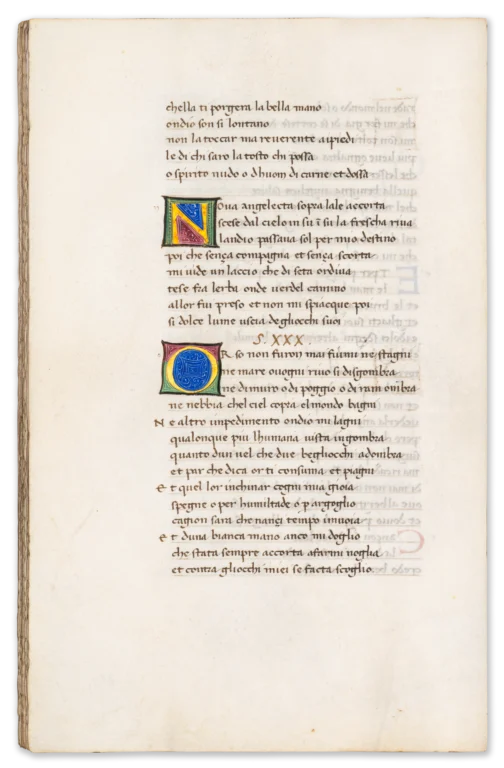 chella ti porgera la bella mano
ondio son si lontano
non la toccar ma reverente aipiedi
le di chi saro la tosto chi possa
o spirito nudo o dhuom di carne et dossa
Nova angelecta sopra lale accorta
scese dal cielo in su ĩ su la frescha riva
landio passava sol per mio destino
poi che sença compagna et sença scorta
mi vide un laccio che di seta ordiva
tese fra lerba onde verdel camino
allor fui preso et non mi spiacque poi
si dolce lume uscia degliocchi suoi
S. XXX.
OR so non furon mai fiumi ne stagni
ne mare ovogni rivo si disgombra
ne di muro o di poggio o di ram ombra
ne nebbia chel ciel copra el mondo bagni
Ne altro impedimento ondio mi lagni
qualonque piu lhumana vista ingombra
quanto dun vel che due begliocchi adombra
et par che dica or ti consuma et piagni
Et quel lor inchinar cogni mia gioia
spegne o per humiltade o p argoglio
cagion sara che nançi tempo imuoia
Et duna bianca mano anco mi doglio
che stata sempre accorta afarmi noglia
et contra gliocchi miei se facta scoglio.